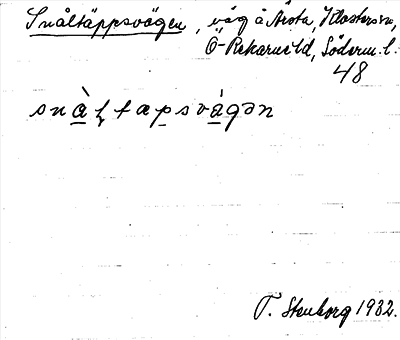 Snåltäppsvägen, väg å Årsta, Klosters sn,
Ö-Rekarne hd, Söderm. l.
48
snàltapsvágən
T. Stenborg 1932.